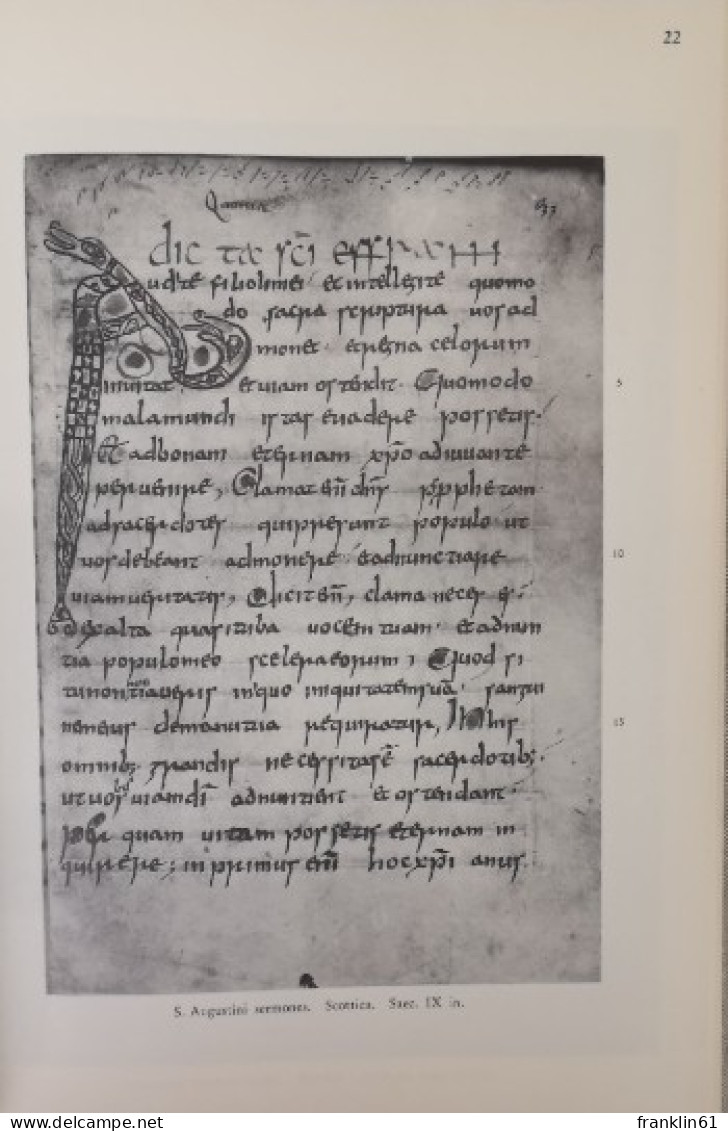 22
dicta sci effraim
Audite filioli mei et intellegite quomo
do sacra scriptura uos ad
monet et regna celorum
inuitat et uiam ostendit. Quomodo
5
mala mundi istas euadere possetis.
Et ad bonam eternam xpo adiuuante
peruenire, Clamat eni dns per prophetam
ad sacerdotes qui prerunt populo ut
uos debeant admonere et adnunctiare
10
uiam ueritatis, Dicit eni, clama ne ces
exalta quasi tuba uocem tuam et adnun
tia populo meo scelera eorum, Quod si
tu non adnuntiaueris iniquo iniquitatem suam sangui
nem eius de manu tua requiratur, In his
15
omnib; grandis necessitas e sacerdotib;
ut uobis uiam di adnuntient et ostendant
per quam uitam possetis eternam in
quirere; in primus eni hoc xpi anus
S. Augustini sermones. Scottica. Saec. IX in.
www.delcampe.net
franklin61